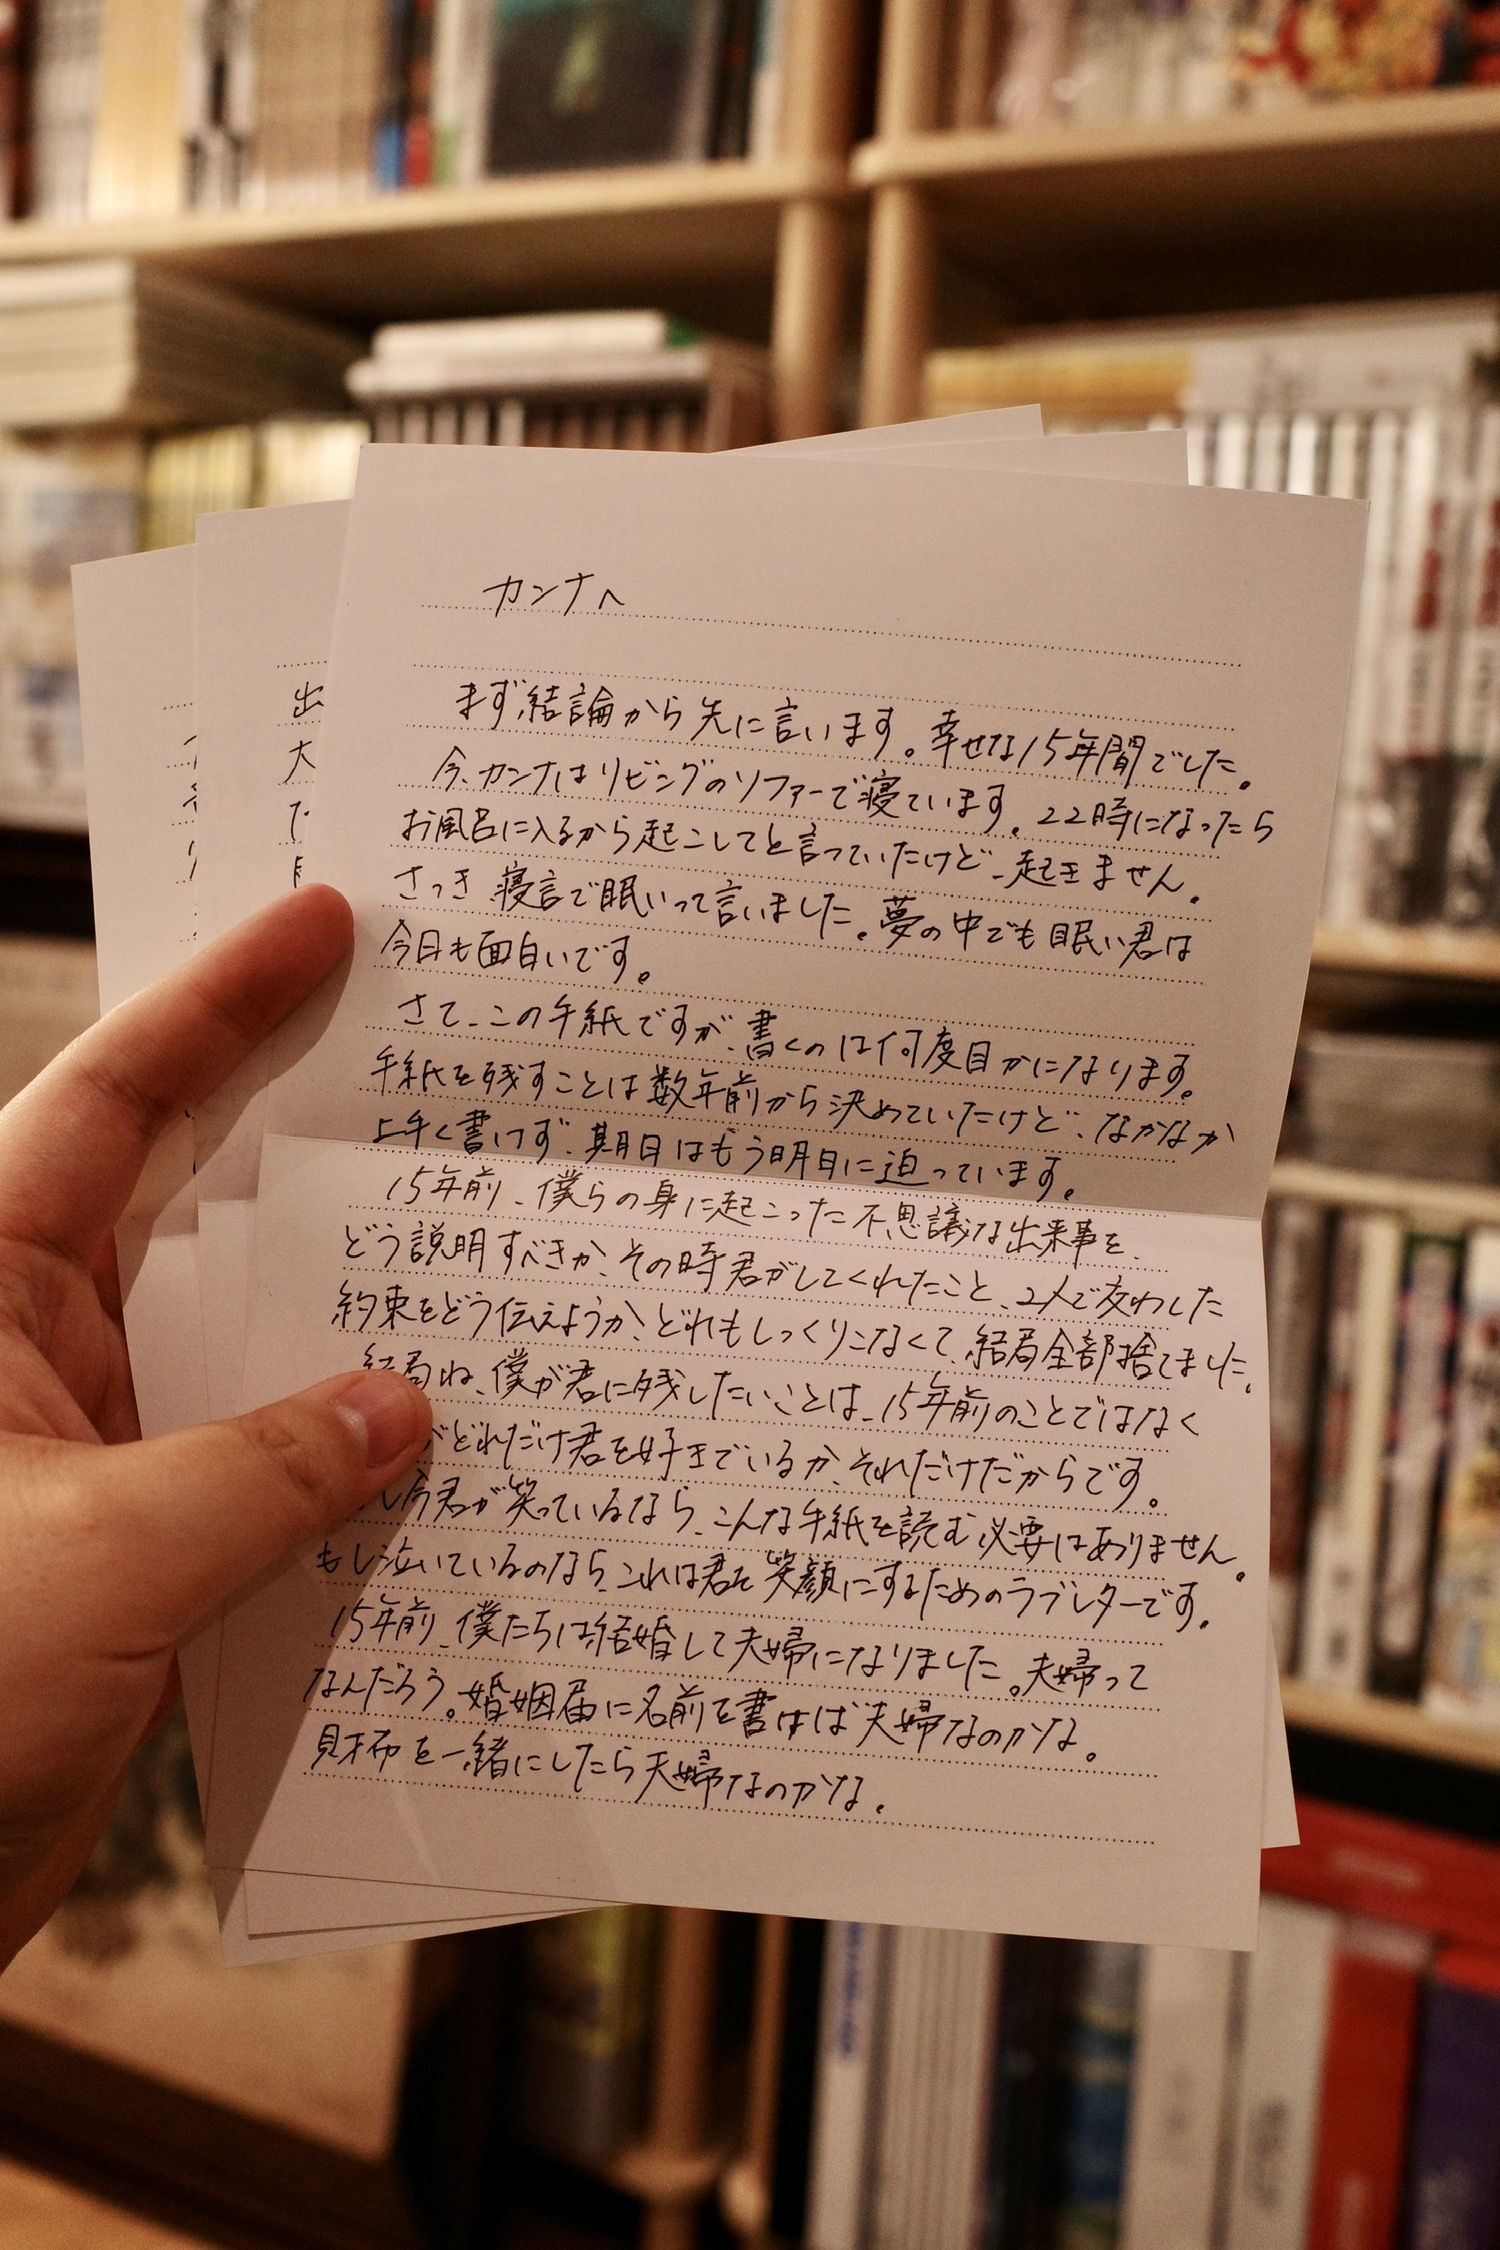 カンナへ
まず、結論から先に言います。幸せな15年間でした。
今、カンナはリビングのソファーで寝ています。22時になったら
お風呂に入るから起こしてと言っていたけど、起きません。
さっき、寝言で眠いって言いました。夢の中でも眠い君は
今日も面白いです。
さて、この手紙ですが、書くのは何度目かになります。
手紙を残すことは数年前から決めていたけど、なかなか
上手く書けず、期日はもう明日に迫っています。
15年前、僕らの身に起こった不思議な出来事を、
どう説明すべきか、その時君がしてくれたこと、2人で交わした
約束をどう伝えようか、どれもしっくりこなくて、結局全部捨てました。
結局ね、僕が君に残したいことは、15年前のことではなく
がどれだけ君を好きでいるか、それだけだからです。
し今君が笑っているなら、こんな手紙を読む必要はありません。
もし泣いているのなら、これは君を笑顔にするためのラブレターです。
15年前、僕たちは結婚して夫婦になりました。夫婦って
なんだろう。婚姻届に名前を書けば夫婦なのかな。
財布を一緒にしたら夫婦なのかな。
出
大